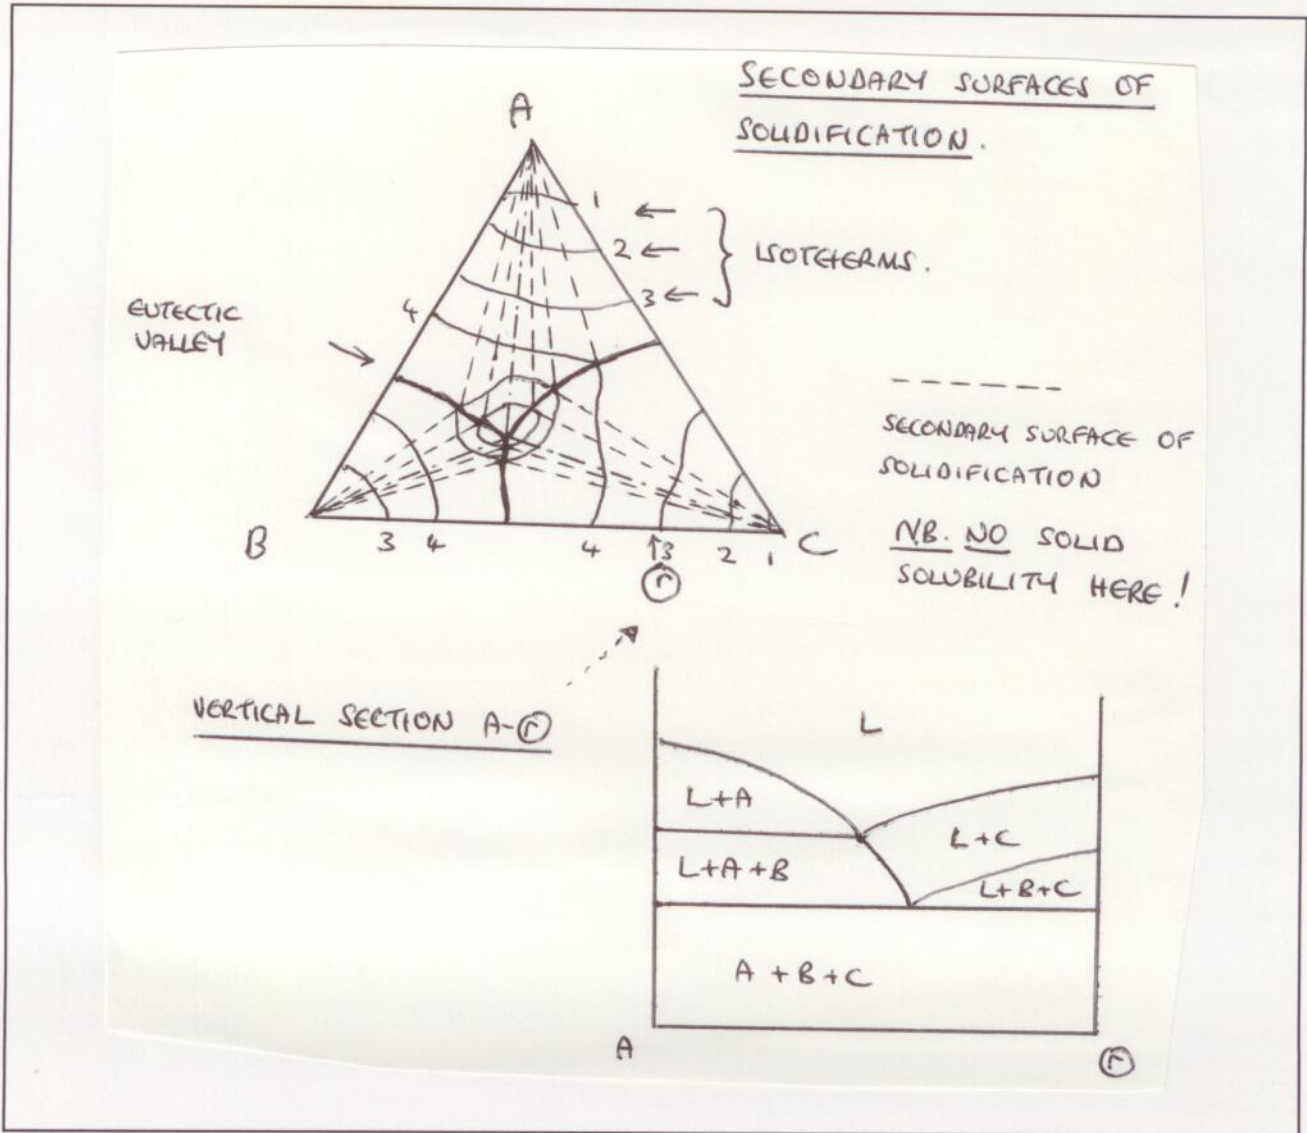 SECONDARY SURFACES OF
SOLIDIFICATION.
A
1
2
3
ISOTHERMS.
4
EUTECTIC
VALLEY
SECONDARY SURFACE OF
SOLIDIFICATION
N.B. NO SOLID
SOLUBILITY HERE!
B
3 4 4 3 2 1
C
r
VERTICAL SECTION A-r
L
L+A
L+C
L+A+B
L+B+C
A+B+C
A
r